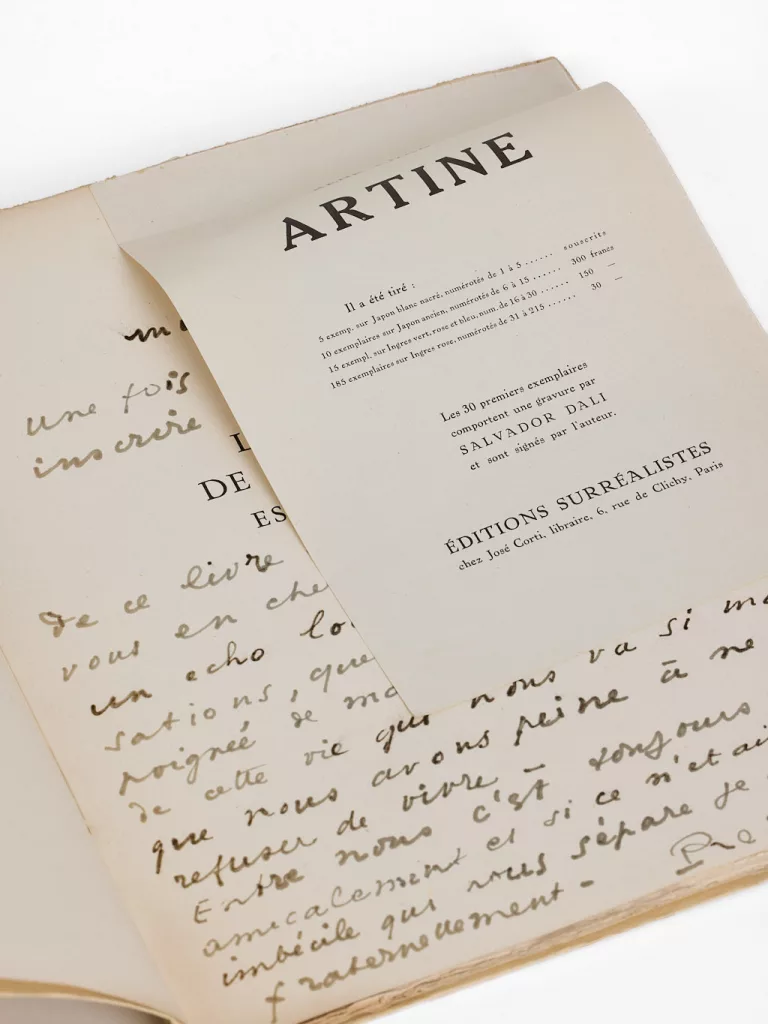 ARTINE
Il a été tiré :
5 exemp. sur Japon blanc nacré, numérotés de 1 à 5 ...... souscrits
10 exemplaires sur Japon ancien, numérotés de 6 à 15 ...... 300 francs
15 exempl. sur Ingres vert, rose et bleu, num. de 16 à 30 ...... 150 —
185 exemplaires sur Ingres rose, numérotés de 31 à 215 ...... 30 —
Les 30 premiers exemplaires
comportent une gravure par
SALVADOR DALI
et sont signés par l'auteur.
ÉDITIONS SURRÉALISTES
chez José Corti, libraire, 6, rue de Clichy, Paris
une fois
inscrire
DE
ES
De ce livre
vous en che
un echo lo
sations, que
poignée de ma
de cette vie qui nous va si ma
que nous avons peine à ne
refuser de vivre –
Entre nous c'est toujours
amicalement et si ce n'etai
imbécile qui nous sépare je
fraternellement –